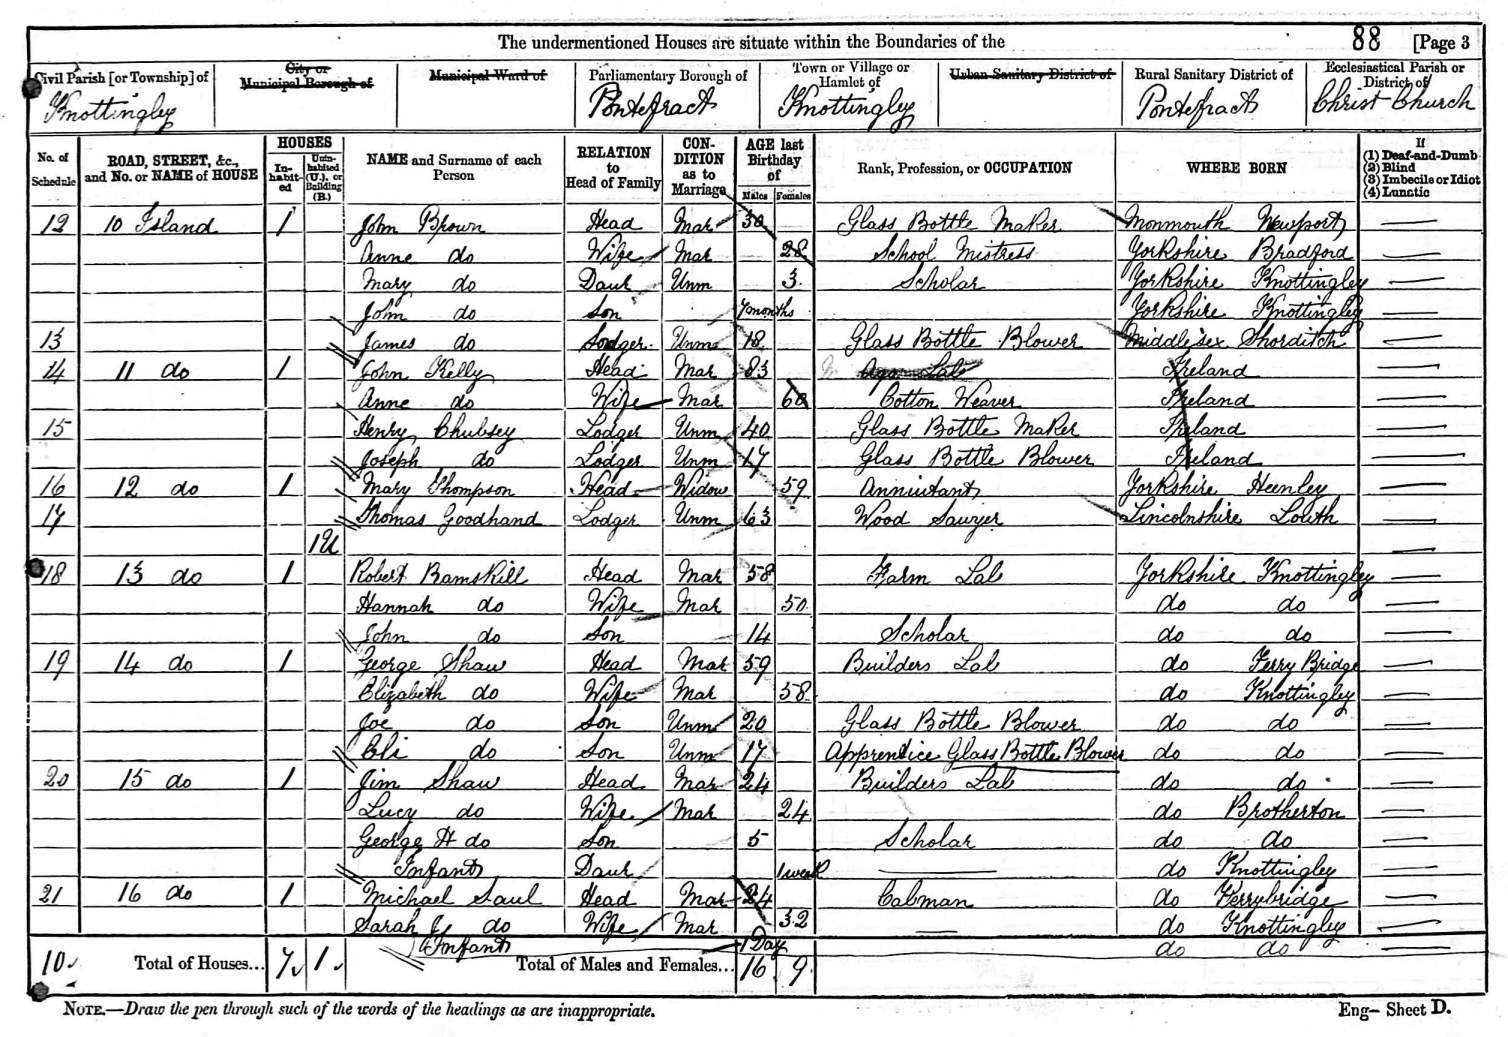 The undermentioned Houses are situate within the Boundaries of the 88 [Page 3
Civil Parish [or Township] of City or Municipal Borough of Municipal Ward of Parliamentary Borough of Town or Village or Hamlet of Urban Sanitary District of Rural Sanitary District of Ecclesiastical Parish or District of
Knottingley Pontefract Knottingley Pontefract Christ Church
No. of Schedule ROAD, STREET, &c., and No. or NAME of HOUSE HOUSES Inhabited Uninhabited (U.), or Building (B.) NAME and Surname of each Person RELATION to Head of Family CONDITION as to Marriage AGE last Birthday of Males Females Rank, Profession, or OCCUPATION WHERE BORN If (1) Deaf-and-Dumb (2) Blind (3) Imbecile or Idiot (4) Lunatic
12 10 Island 1 John Brown Head Mar 30 Glass Bottle Maker Monmouth Newport
Anne do Wife Mar 28 School Mistress Yorkshire Bradford
Mary do Daur Unm 3 Scholar Yorkshire Knottingley
John do Son 7 months Yorkshire Knottingley
13 James do Lodger Unm 18 Glass Bottle Blower Middlesex Shorditch
14 11 do 1 John Kelly Head Mar 83 Ag Lab Ireland
Anne do Wife Mar 60 Cotton Weaver Ireland
15 Henry Chubsey Lodger Unm 40 Glass Bottle Maker Ireland
Joseph do Lodger Unm 17 Glass Bottle Blower Ireland
16 12 do 1 Mary Thompson Head Widow 59 Anniutant Yorkshire Heenley
17 Thomas Goodhand Lodger Unm 63 Wood Sawyer Lincolnshire Louth
1U
18 13 do 1 Robert Ramskill Head Mar 58 Farm Lab Yorkshire Knottingley
Hannah do Wife Mar 50 do do
John do Son 14 Scholar do do
19 14 do 1 George Shaw Head Mar 59 Builders Lab do Ferry Bridge
Elizabeth do Wife Mar 58 do Knottingley
Joe do Son Unm 20 Glass Bottle Blower do do
Eli do Son Unm 17 Apprendice Glass Bottle Blower do do
20 15 do 1 Jim Shaw Head Mar 24 Builders Lab do do
Lucy do Wife Mar 24 do Brotherton
George H do Son 5 Scholar do do
Infant Daur 1 week do Knottingley
21 16 do 1 Michael Saul Head Mar 24 Cabman do Ferrybridge
Sarah J do Wife Mar 32 do Knottingley
Infant 1 Day do do
10 Total of Houses... 7 1 Total of Males and Females... 16 9
NOTE.—Draw the pen through such of the words of the headings as are inappropriate. Eng— Sheet D.